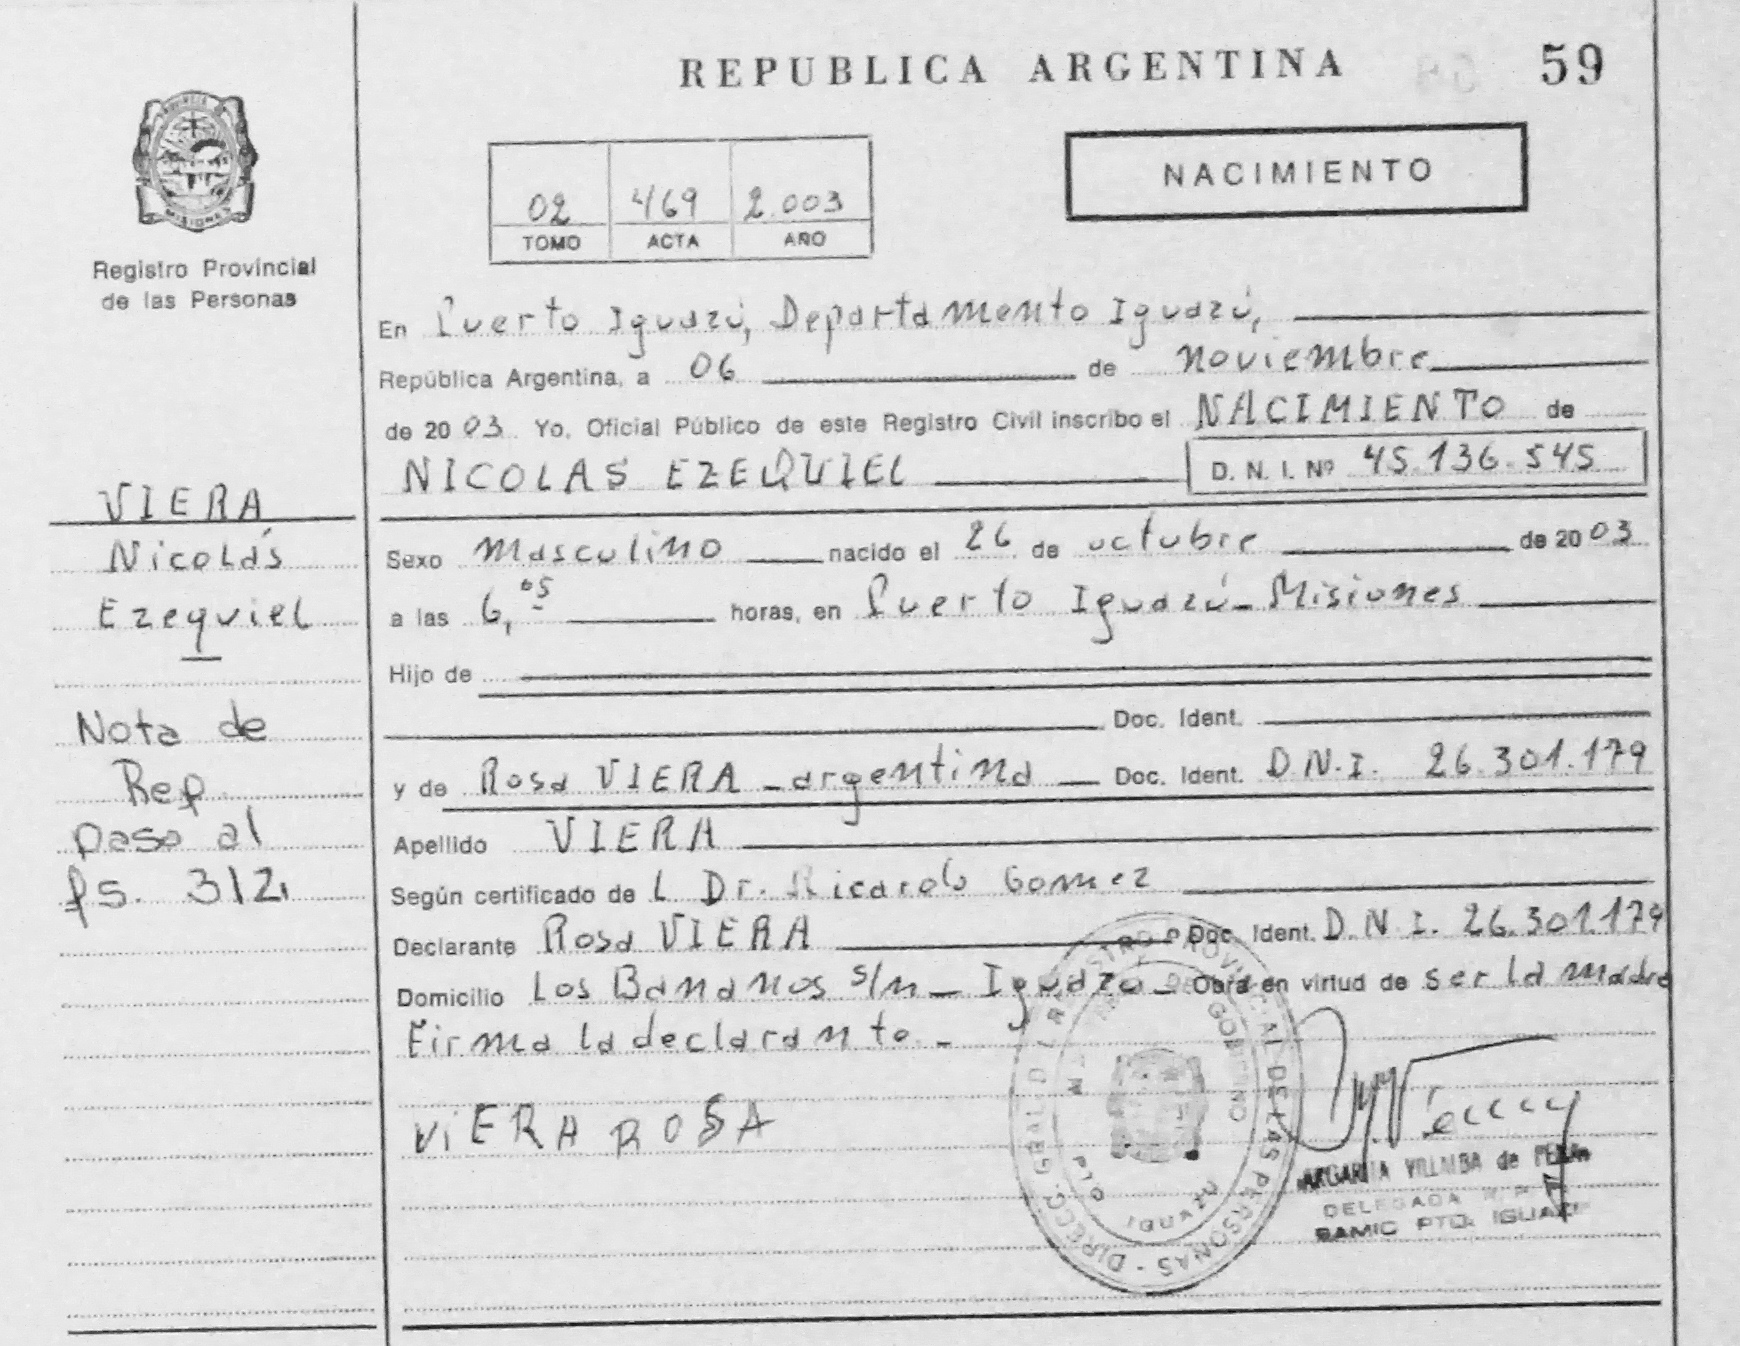 REPUBLICA ARGENTINA
59
NACIMIENTO
02 469 2.003
TOMO ACTA AÑO
MISIONES
Registro Provincial
de las Personas
En Puerto Iguazú, Departamento Iguazú,
República Argentina, a 06 de noviembre
de 2003 Yo, Oficial Público de este Registro Civil inscribo el NACIMIENTO de
NICOLAS EZEQUIEL D. N. I. Nº 45.136.545
VIERA
Nicolás
Ezequiel
Nota de
Ref
paso al
fs. 312
Sexo Masculino nacido el 26 de octubre de 2003
a las 6,05 horas, en Puerto Iguazú - Misiones
Hijo de
Doc. Ident.
y de Rosa VIERA - argentina Doc. Ident. D.N.I. 26.301.179
Apellido VIERA
Según certificado de L Dr. Ricardo Gomez
Declarante Rosa VIERA Doc. Ident. D.N.I. 26.301.179
Domicilio Los Bananos s/n - Iguazú - Obra en virtud de ser la madre
Firma la declarante. -
ViERA ROSA
DIRECC. GRAL. D L REGISTRO PROVINCIAL DE LAS PERSONAS
GOBIERNO
PTO IGUAZU
MARGARITA VILLALBA de
DELEGADA
SAMIC PTO. IGUAZU